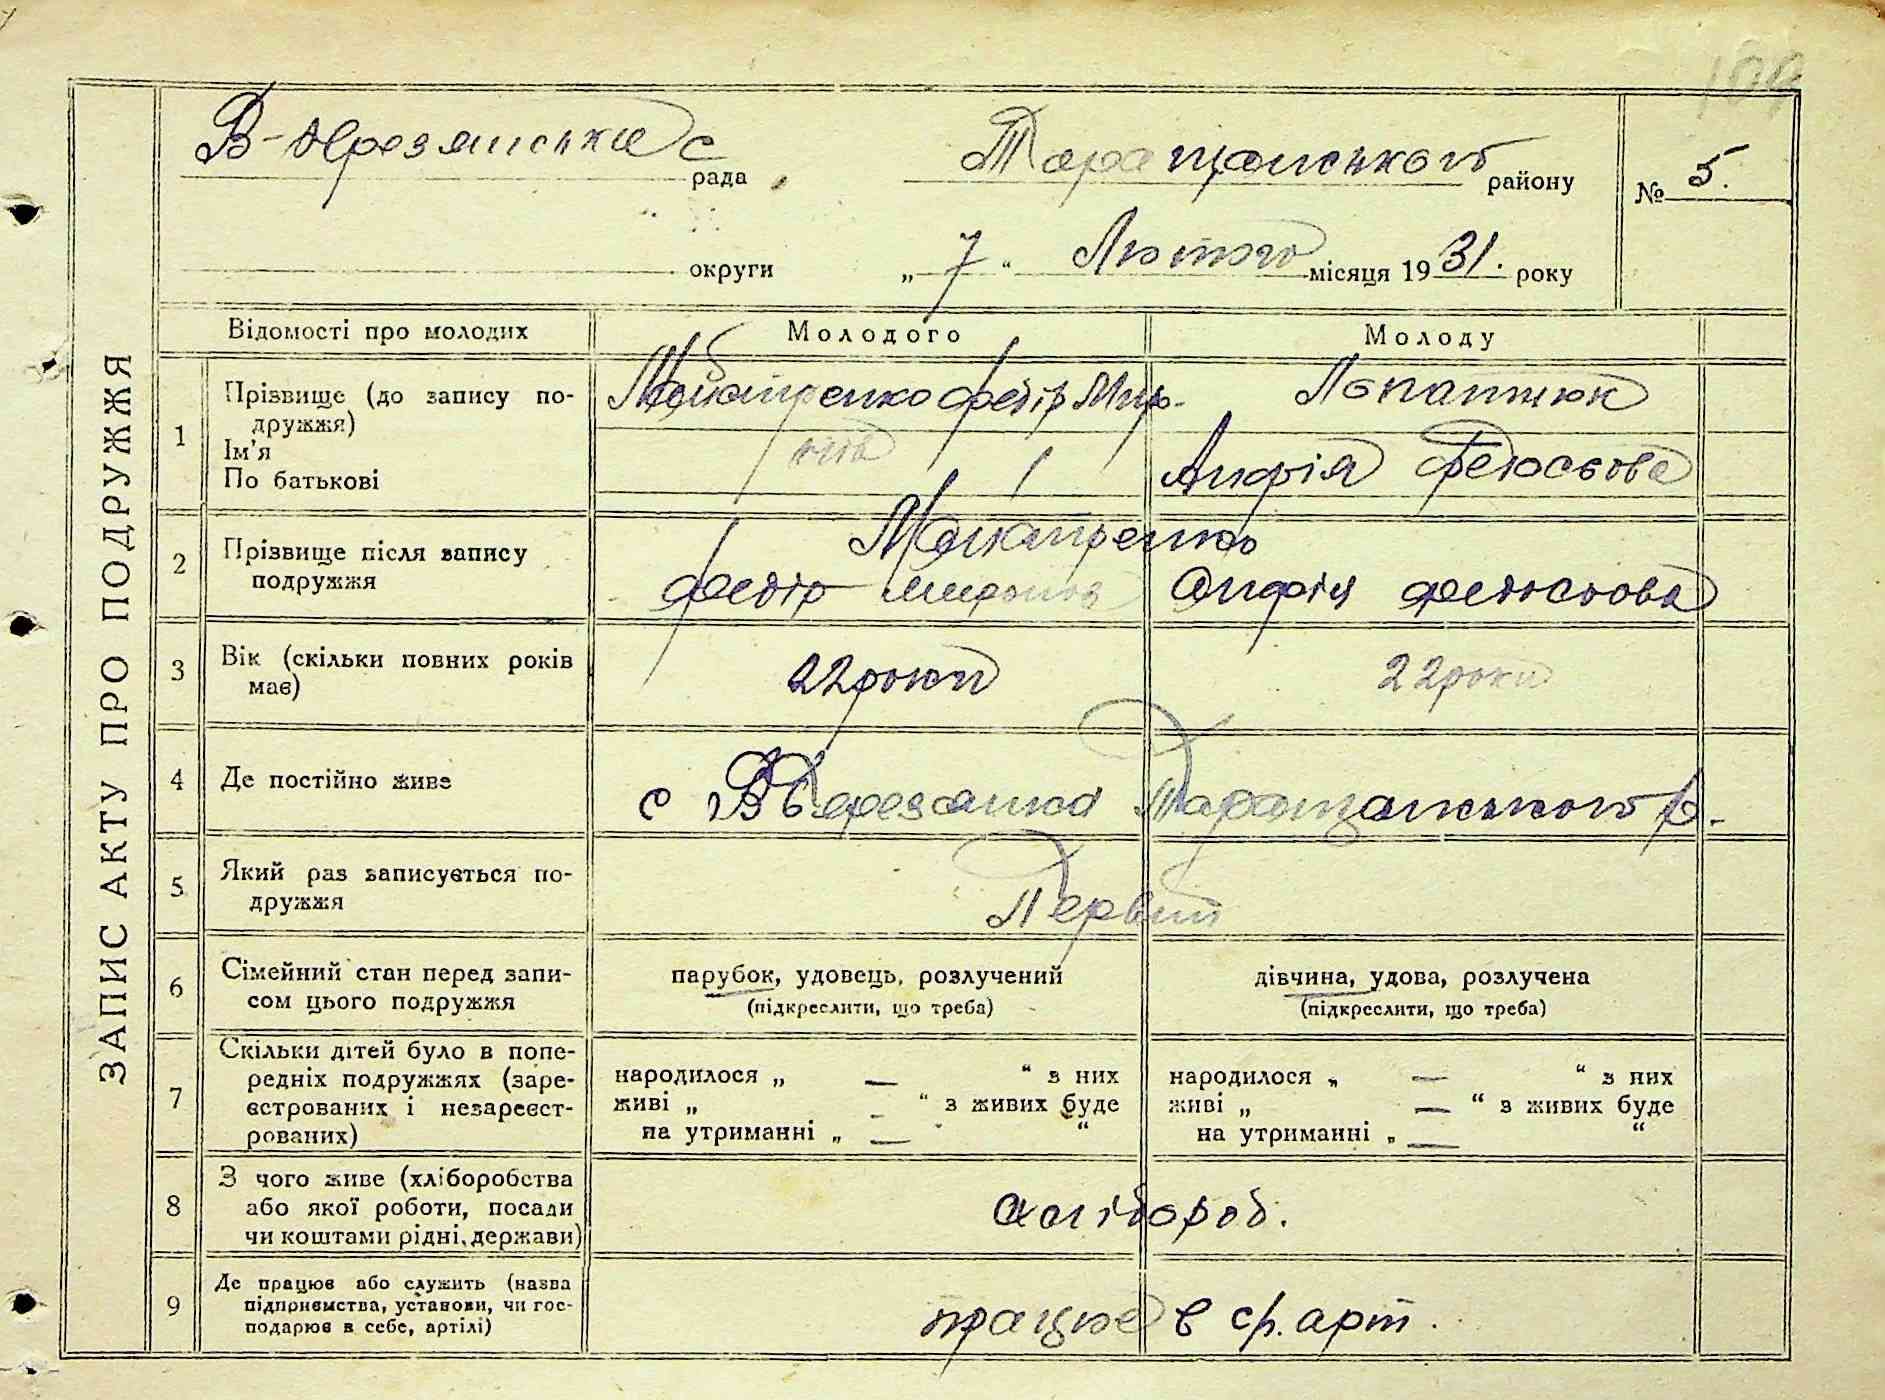 ЗАПИС АКТУ ПРО ПОДРУЖЖЯ
В-Березянська с рада Таращанського району № 5.
округи „ 7 “ Лютого місяця 1931. року
Відомості про молодих Молодого Молоду
1 Прізвище (до запису по-
дружжя)
Ім'я
По батькові
Федір Мир-
онів
Лопатнюк
Анфія
2 Прізвище після запису
подружжя
Федір Миронов Онфія
3 Вік (скільки повних років
має)
22 роки 22 роки
4 Де постійно живе
с В Березанка Таращанського р.
5 Який раз записується по-
дружжя
Первий
6 Сімейний стан перед запи-
сом цього подружжя
парубок, удовець, розлучений
(підкреслити, що треба)
дівчина, удова, розлучена
(підкреслити, що треба)
7 Скільки дітей було в попе-
редніх подружжях (заре-
єстрованих і незареєст-
рованих)
народилося „ — “ з них
живі „ - “ з живих буде
на утриманні „ — “
народилося „ — “ з них
живі „ — “ з живих буде
на утриманні „ — “
8 З чого живе (хліборобства
або якої роботи, посади
чи коштами рідні, держави)
хлібороб.
9 Де працює або служить (назва
підприємства, установи, чи гос-
подарює в себе, артілі)
працює в с/г. арт.